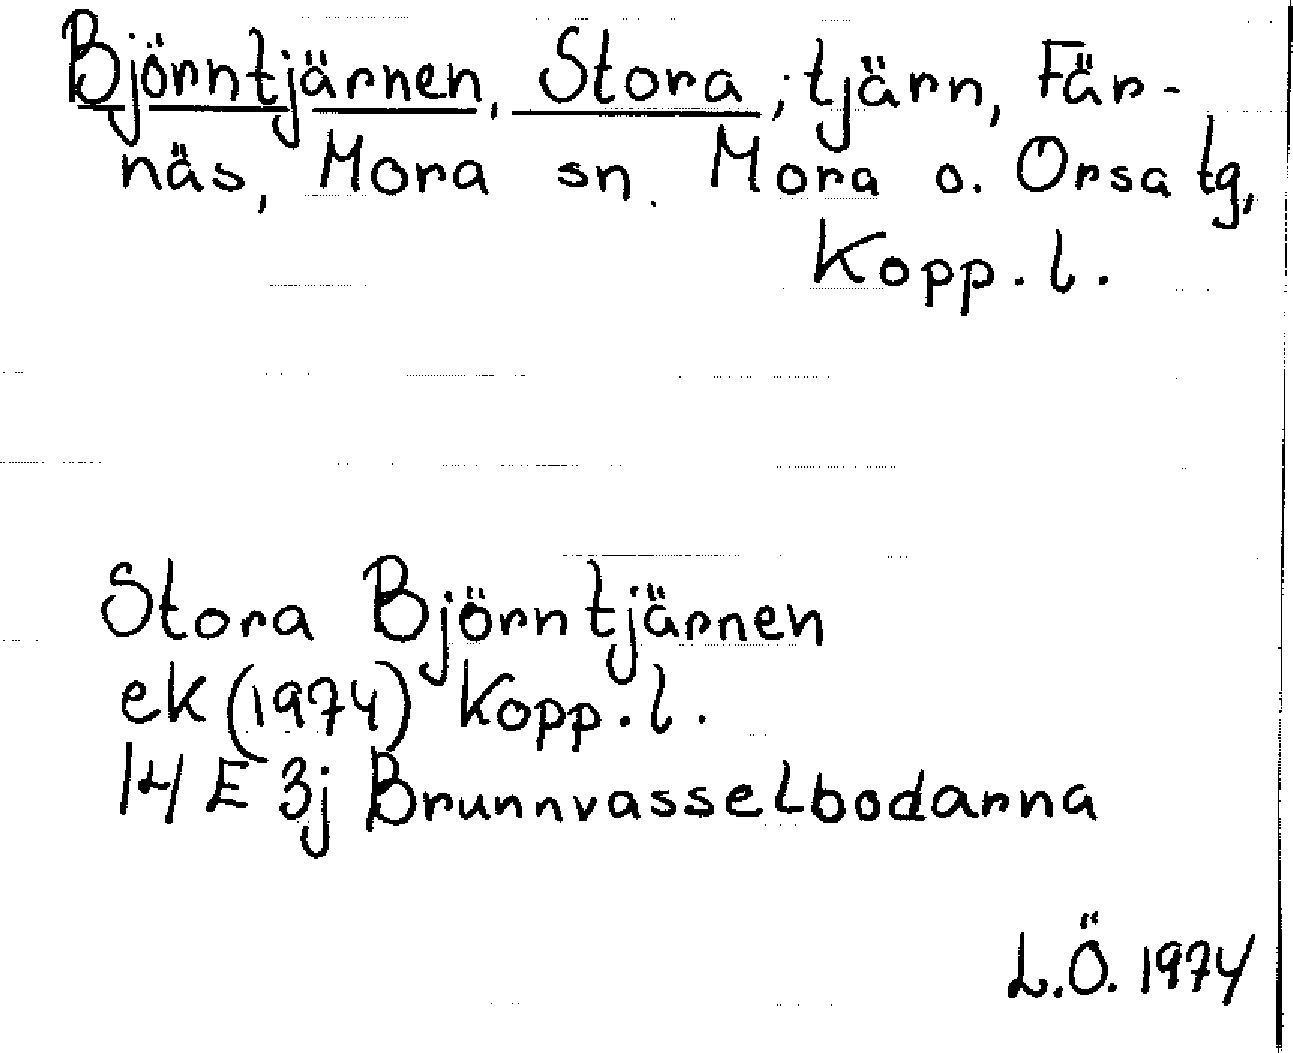 Björntjärnen, Stora; tjärn, Fär-
näs, Mora sn. Mora o. Orsa tg,
Kopp. l.
Stora Björntjärnen
ek (1974) Kopp. l.
14 E 3j Brunnvasselbodarna
L.Ö. 1974